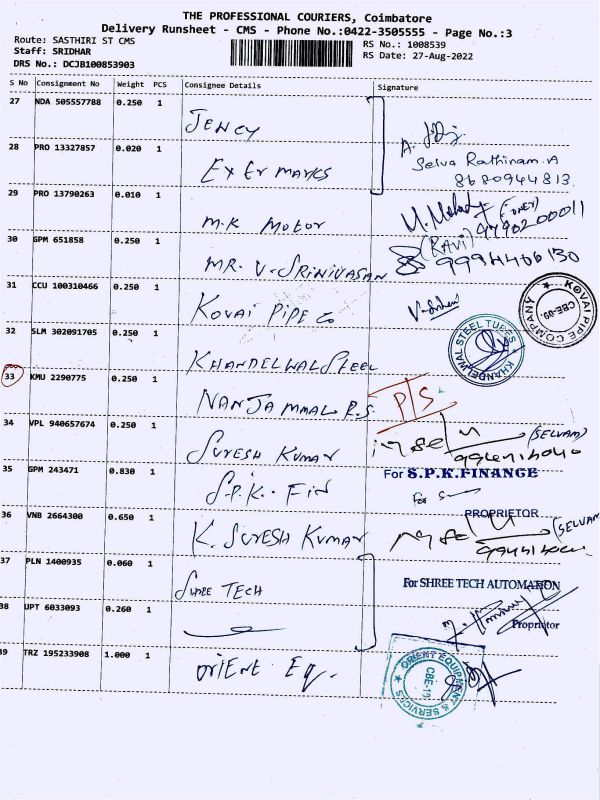 THE PROFESSIONAL COURIERS, Coimbatore
Delivery Runsheet - CMS - Phone No.:0422-3505555 - Page No.:3
Route: SASTHIRI ST CMS
Staff: SRIDHAR
DRS No.: DCJB100853903
RS No.: 1008539
RS Date: 27-Aug-2022
S No Consignment No Weight PCS Consignee Details Signature
27 NDA 505557788 0.250 1
JENCY
28 PRO 13327857 0.020 1
Ex Er marks
Selva Rathinam.A
8680944813
29 PRO 13790263 0.010 1
M.K Motor
9790200011
30 GPM 651858 0.250 1
(RAVI)
MR. V. SRINIVASAN
9994466130
31 CCU 100310466 0.250 1
KOVAI PIPE Co
KOVAI PIPE COMPANY
32 SLM 302091705 0.250 1
KHANDELWAL STEEL
KHANDELWAL STEEL TUBES
33 KMU 2290775 0.250 1
NANJAMMAL R.S
P/S
34 VPL 940657674 0.250 1
SURESH KUMAR
(SELVAM)
35 GPM 243471 0.830 1
S.P.K. FIN
For S.P.K.FINANCE
PROPRIETOR
36 VNB 2664300 0.650 1
K. SURESH KUMAR
(SELVAM
37 PLN 1400935 0.060 1
SHREE TECH
For SHREE TECH AUTOMATION
38 UPT 6033093 0.260 1
Proprietor
39 TRZ 195233908 1.000 1
ORIENT Eq.
ORIENT EQUIPMENT & SERVICES
CBE-19